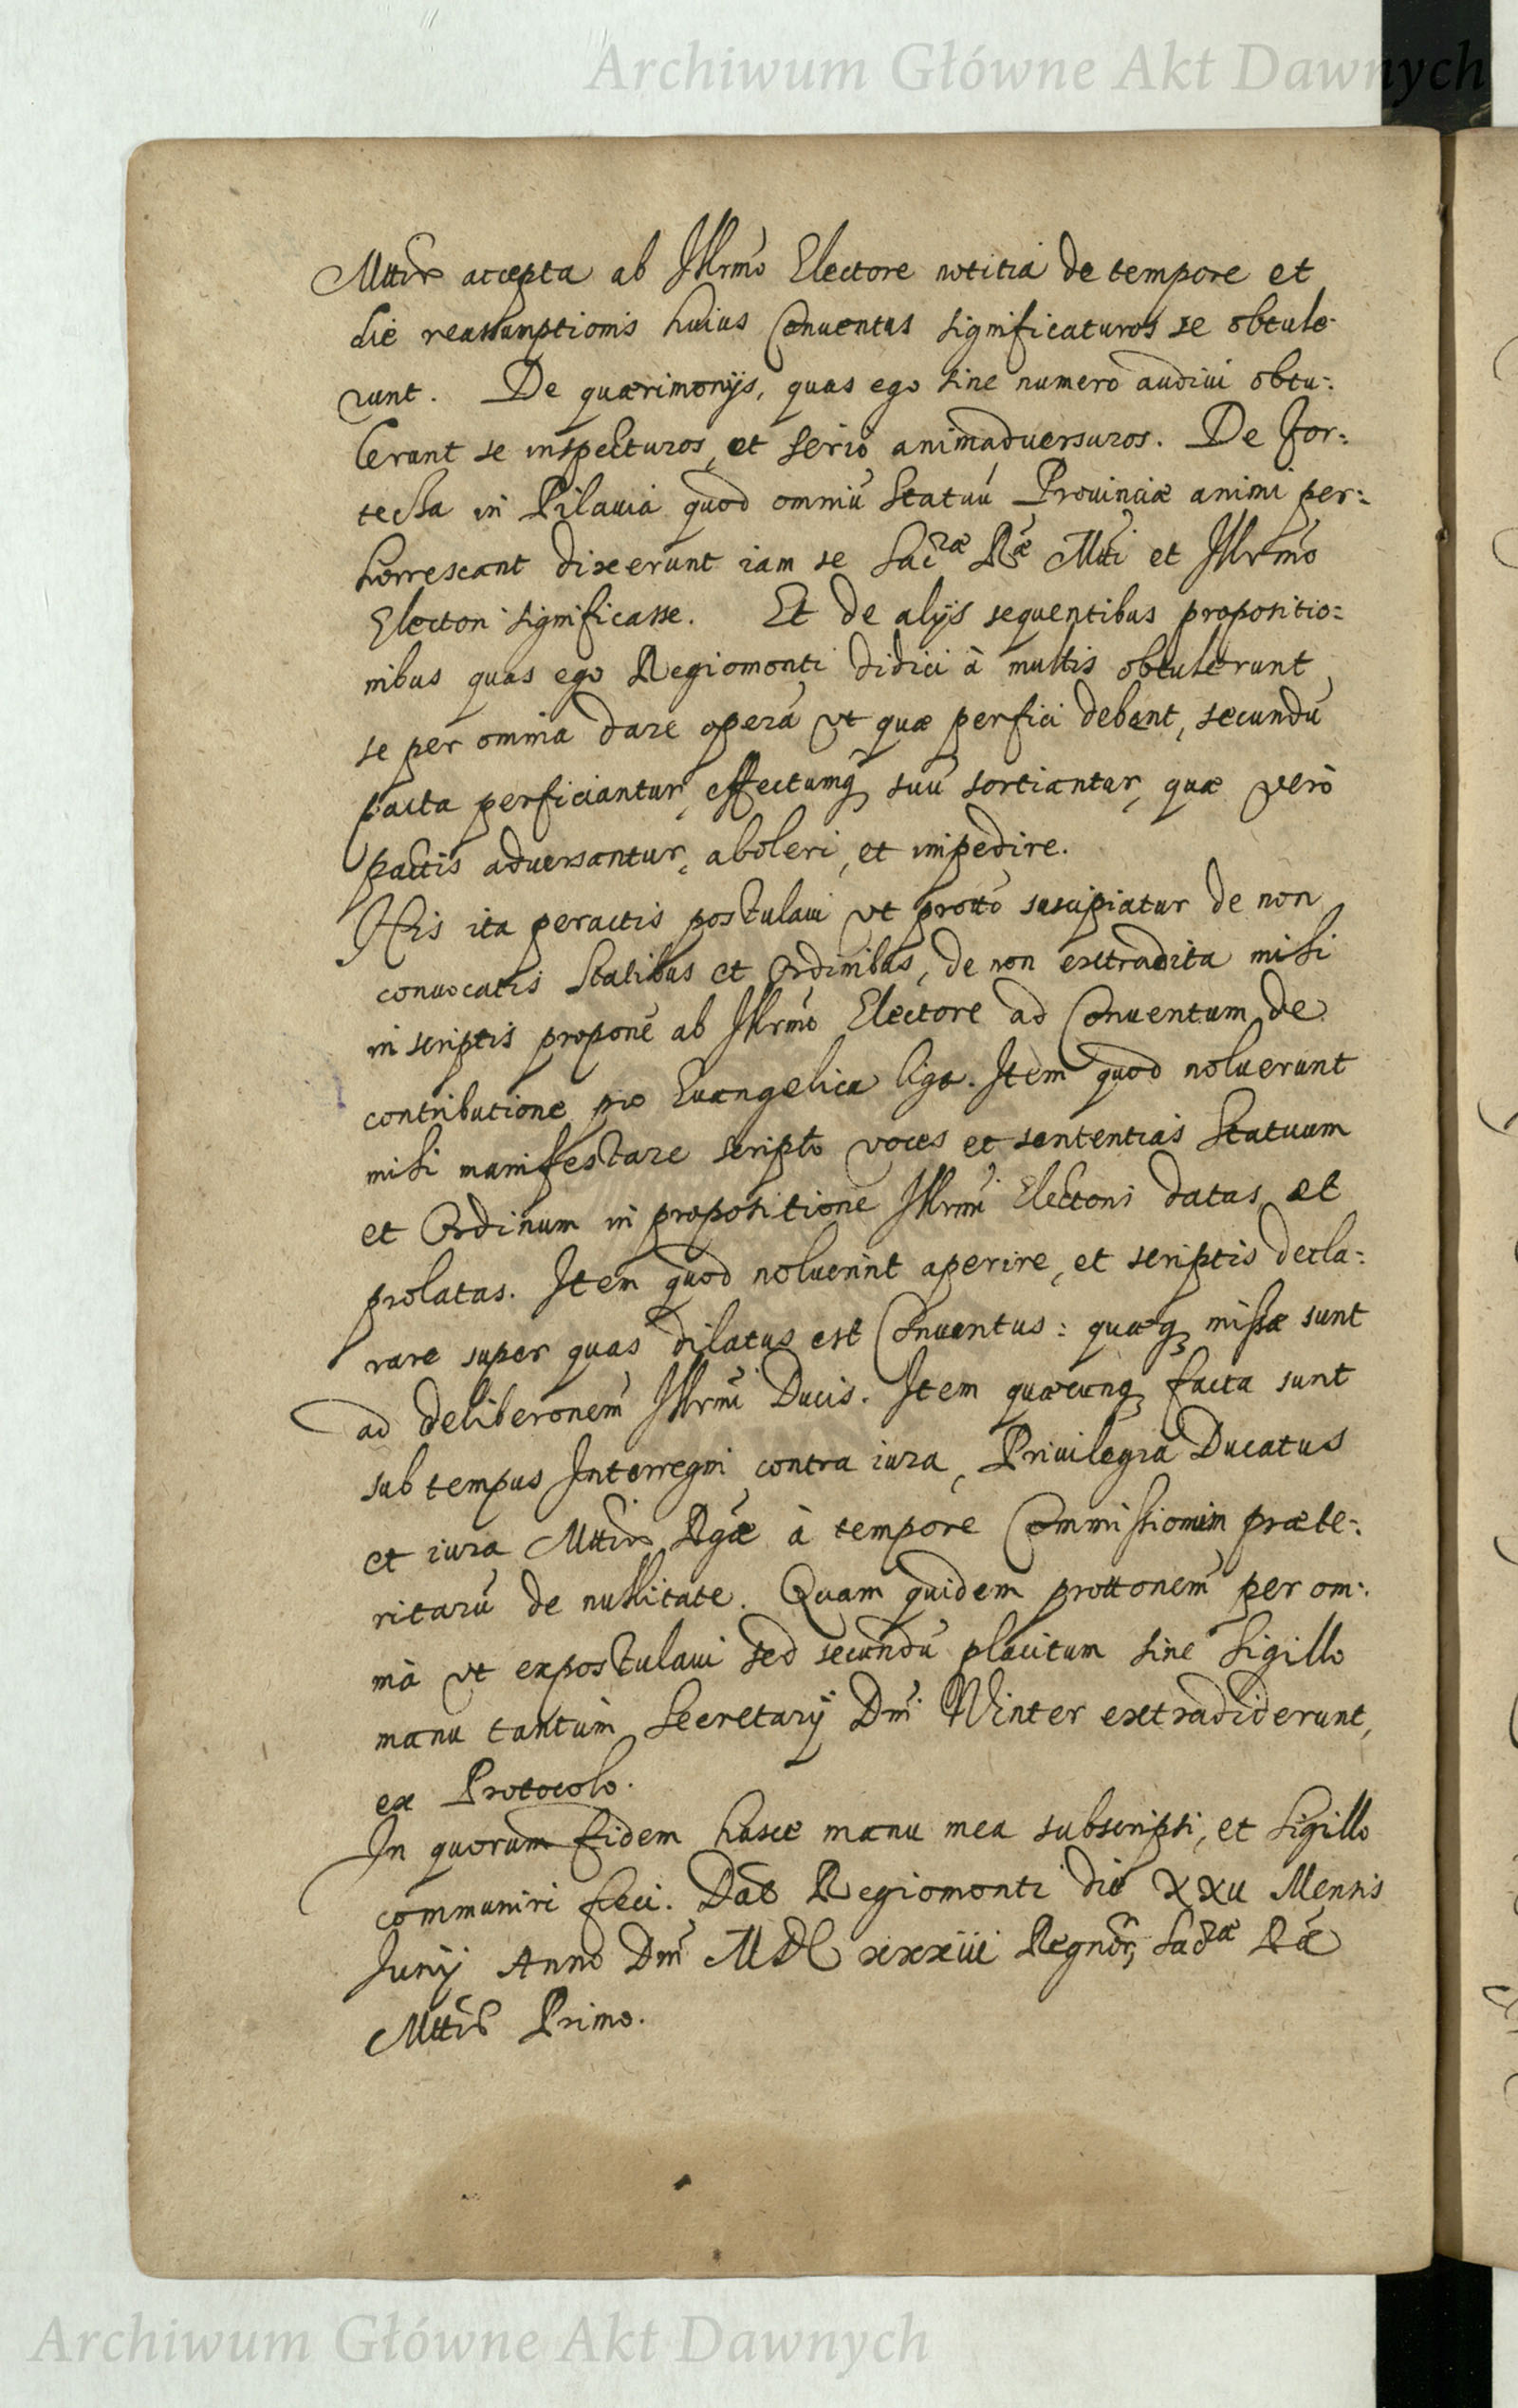 Archiwum Główne Akt Dawnych
Mttis accepta ab Illrmo Electore notitia de tempore et
die reassumptionis huius Conuentus significaturos se obtule-
runt. De quærimonijs, quas ego sine numero audiui obtu-:
lerunt se inspecturos, et serio animaduersuros. De For-:
tecta in Pilauia quod omniũ Statuũ Prouinciæ animi per-:
horrescant dixerunt iam se Sacræ Ræ Mtti et Illrmo
Electori significasse. Et de alijs sequentibus propositio-:
nibus quas ego Regiomonti didici à multis obtulerunt
se per omnia dare operã vt quæ perfici debent, secundũ
pacta perficiantur, effectumq suũ sortiantur, quæ verò
pactis aduersantur, aboleri, et impedire.
His ita peractis postulaui vt protto suscipiatur de non
conuocatis Statibus et Ordinibus, de non extradita mihi
in scriptis propone ab Illrmo Electore ad Conuentum de
contributione pro Euangelica liga. Item quod noluerunt
mihi manifestare scripto voces et sententias Statuum
et Ordinum in propositione Illrmi Electoris datas et
prolatas. Item quod noluerint aperire, et scriptis decla-:
rare super quas dilatus est Conuentus: quæq missæ sunt
ad deliberonem Illrmi Ducis. Item quæcunq facta sunt
sub tempus Interregni contra iura, Priuilegia Ducatus
et iura Mttis Rgæ à tempore Commissionum præte-:
ritarũ de nullitate. Quam quidem prottonem per om-:
nia vt expostulaui sed secundũ placitum sine Sigillo
manu tantùm Secretarij Dni Winter extradiderunt,
ex Protocolo.
In quorum fidem hasce manu mea subscripsi, et Sigillo
communiri feci. Dat Regiomonti die XXV Mensis
Junij Anno Dni MDC xxxiii Regnor Sacræ Ræ
Mttis Primo.
Archiwum Główne Akt Dawnych